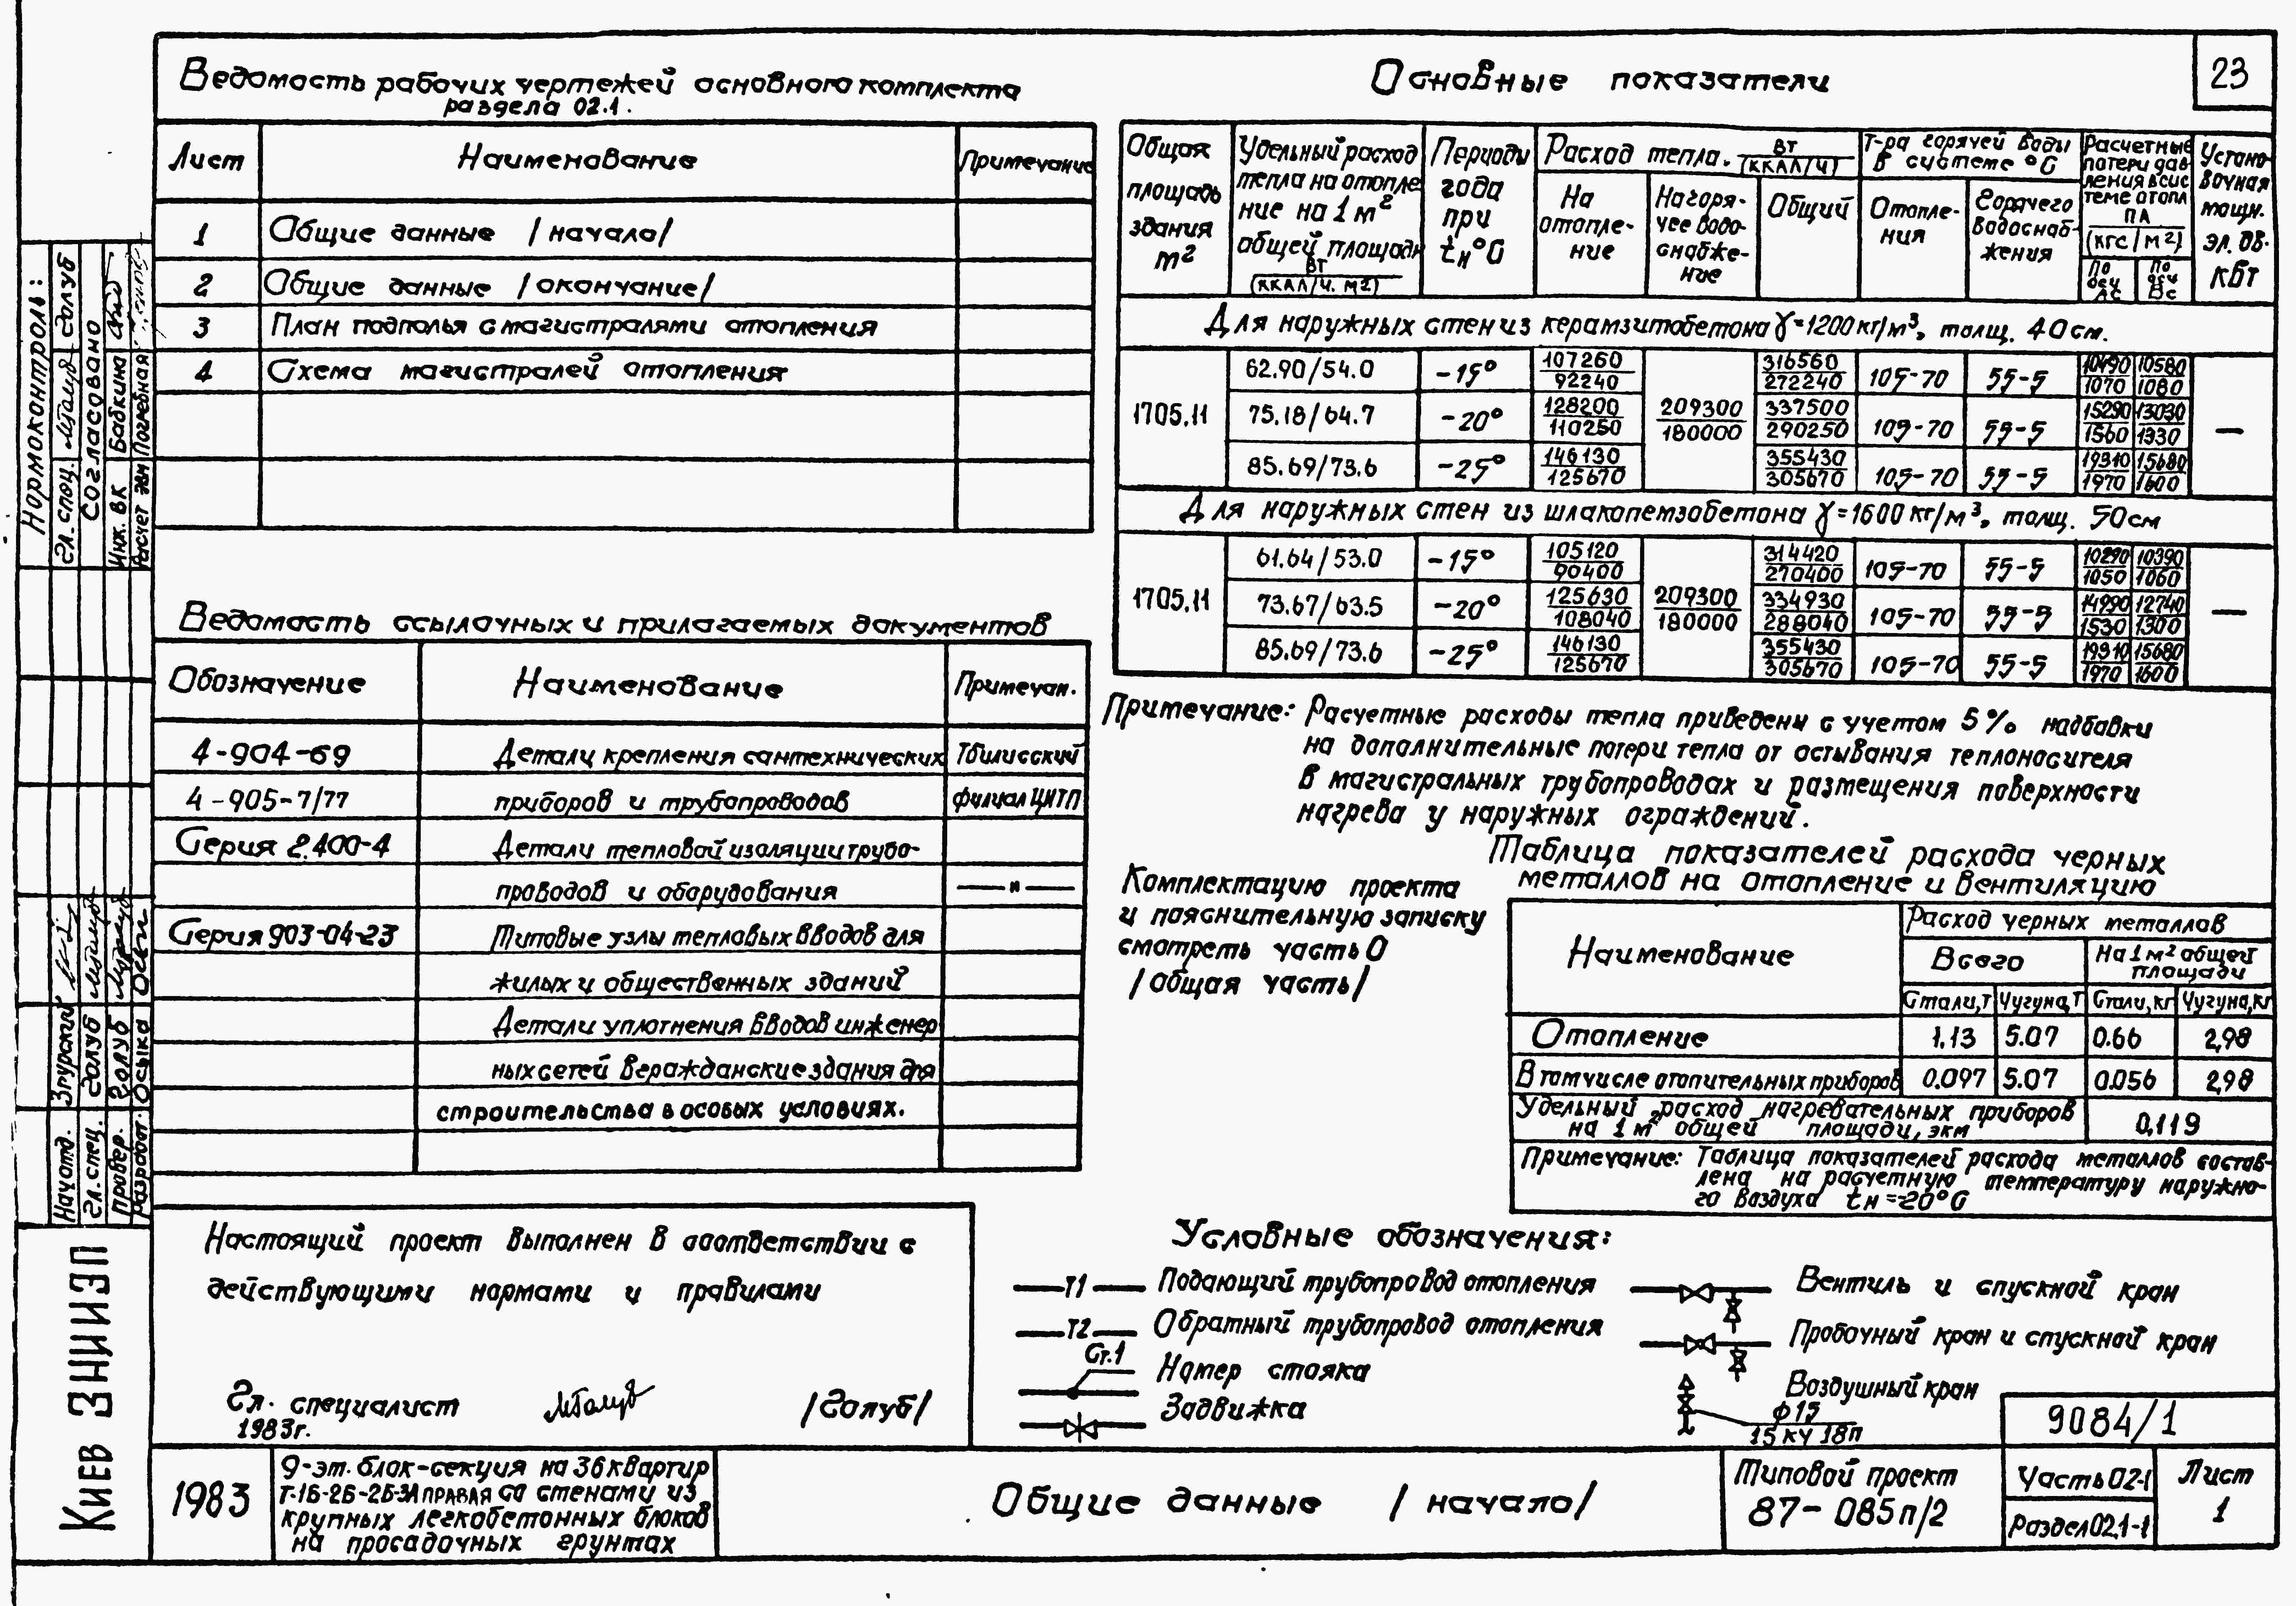 23
Ведомость рабочих чертежей основного комплекта
раздела 02.1.
Лист Наименование Примечание
1 Общие данные /начало/
2 Общие данные /окончание/
3 План подполья с магистралями отопления
4 Схема магистралей отопления
Ведомость ссылочных и прилагаемых документов
Обозначение Наименование Примечан.
4-904-69 Детали крепления сантехнических Тбилисский
4-905-7/77 приборов и трубопроводов филиал ЦИТП
Серия 2.400-4 Детали тепловой изоляции трубо-
проводов и оборудования —"—
Серия 903-04-23 Типовые узлы тепловых вводов для
жилых и общественных зданий
Детали уплотнения вводов инженер
ных сетей в гражданские здания для
строительства в особых условиях.
Настоящий проект выполнен в соответствии с
действующими нормами и правилами
Гл. специалист /Голуб/
1983г.
Основные показатели
Общая площадь здания м²
Удельный расход тепла на отопле ние на 1м² общей площади Вт (ккал/ч. м2)
Периоды года при tн°С
Расход тепла. Вт (ккал/ч)
На отопле- ние
На горя- чее водо- снабже- ние
Общий
Т-ра горячей воды в системе °С
Отопле- ния
Горячего водоснаб- жения
Расчетные потери дав- ления в сис теме отопл ПА (кгс/м²)
По осч Ас
По осч Вс
Устано- вочная мощн. эл. дв. кВт
Для наружных стен из керамзитобетона γ=1200кг/м³, толщ. 40см.
1705.11 209300 180000 —
62.90/54.0 -15° 107260 92240 316560 272240 105-70 55-5 10490 1070 10580 1080
75.18/64.7 -20° 128200 110250 337500 290250 105-70 55-5 15290 1560 13030 1330
85.69/73.6 -25° 146130 125670 355430 305670 105-70 55-5 19310 1970 15680 1600
Для наружных стен из шлакопемзобетона γ=1600кг/м³, толщ. 50см
1705.11 209300 180000 —
61.64/53.0 -15° 105120 90400 314420 270400 105-70 55-5 10290 1050 10390 1060
73.67/63.5 -20° 125630 108040 334930 288040 105-70 55-5 14990 1530 12740 1300
85.69/73.6 -25° 146130 125670 355430 305670 105-70 55-5 19310 1970 15680 1600
Примечание: Расчетные расходы тепла приведены с учетом 5% надбавки
на дополнительные потери тепла от остывания теплоносителя
в магистральных трубопроводах и размещения поверхности
нагрева у наружных ограждений.
Комплектацию проекта
и пояснительную записку
смотреть часть 0
/общая часть/
Таблица показателей расхода черных
металлов на отопление и вентиляцию
Наименование Расход черных металлов
Всего На 1м² общей площади
Стали,т Чугуна,т Стали,кг Чугуна,кг
Отопление 1.13 5.07 0.66 2,98
В том числе отопительных приборов 0.097 5.07 0.056 2,98
Удельный расход нагревательных приборов
на 1м² общей площади, экм 0,119
Примечание: Таблица показателей расхода металлов состав-
лена на расчетную температуру наружно-
го воздуха tн=-20°С
Условные обозначения:
Т1 Подающий трубопровод отопления
Т2 Обратный трубопровод отопления
Ст.1 Номер стояка
Задвижка
Вентиль и спускной кран
Пробочный кран и спускной кран
Воздушный кран
ф15
15кч 18п
9084/1
1983
9-эт. блок-секция на 36 квартир
Т-1Б-2Б-2Б-3А ПРАВАЯ со стенами из
крупных легкобетонных блоков
на просадочных грунтах
Общие данные /начало/
Типовой проект
87-085п/2
Часть 02-1
Раздел 02.1-1
Лист
1
Нормоконтроль:
Гл. спец. Голуб
Согласовано
Инж. ВК Бабкина
Расчет эвм Погребная
Нач.отд. Згурский
Гл. спец. Голуб
Провер. Голуб
Разработ. Осыка
Киев ЗНИИЭП